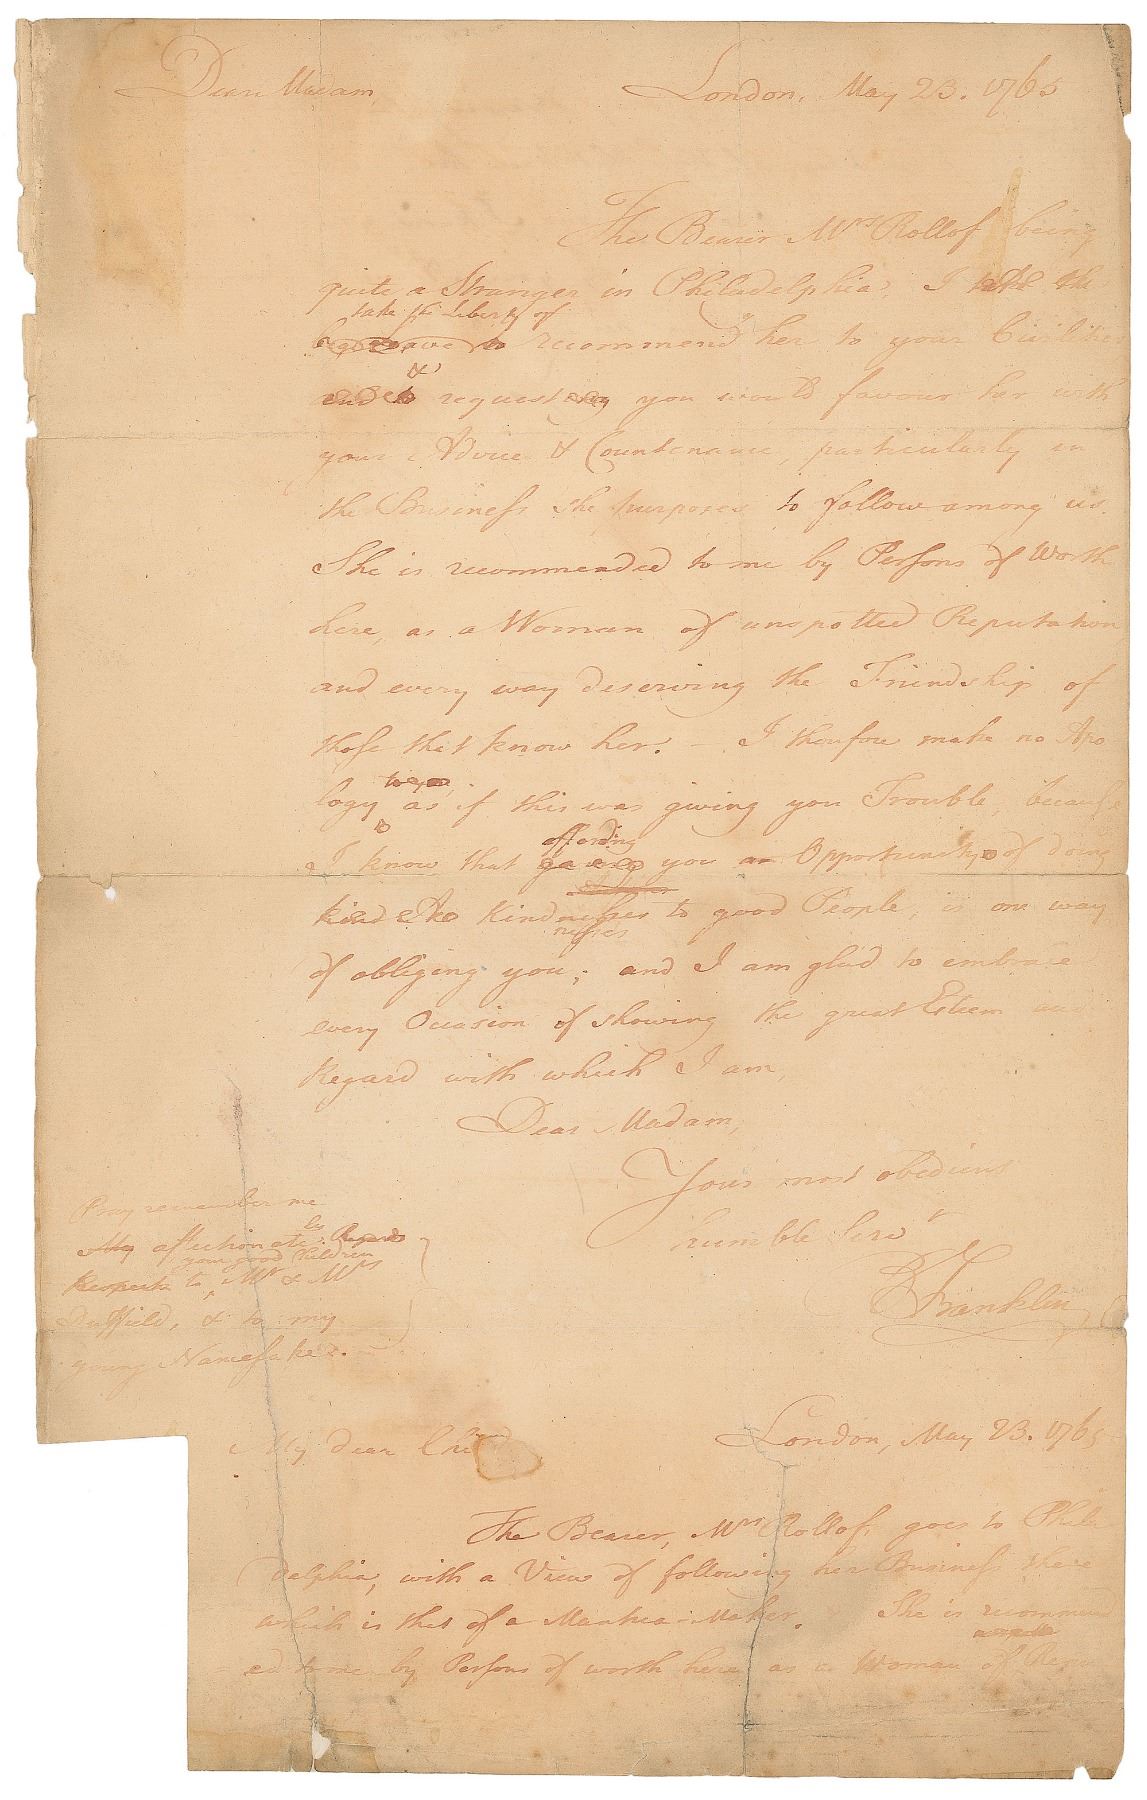 Dear Madam,
London, May 23. 1765
The Bearer Mrs Rollof being
quite a Stranger in Philadelphia, I take the
take the Liberty of
beg leave to recommend her to your Civilities
&
and to requesting you would favour her with
your Advice & Countenance, particularly in
the Business she purposes to follow among us.
She is recommended to me by Persons of Worth
here, as a Woman of unspotted Reputation,
and every way deserving the Friendship of
those that know her. — I therefore make no Apo
logy as if this was giving you Trouble, because
affording
I know that giving you an Opportunity of doing
Kindnesses to good People, is one way
nesses
of obliging you; and I am glad to embrace
every Occasion of showing the great Esteem and
Regard with which I am,
Dear Madam,
Your most obedient
humble Servt
B Franklin
Pray remember me
My affectionate ly Regards
your good Children
Respects to Mr & Mrs
Duffield, & to my
young Namesake.
My dear Child
London, May 23. 1765
The Bearer, Mrs Rollof, goes to Phila
delphia, with a View of following her Business there
which is that of a Mantua-Maker. She is recommend
ed to me by Persons of worth here as a Woman of Repu